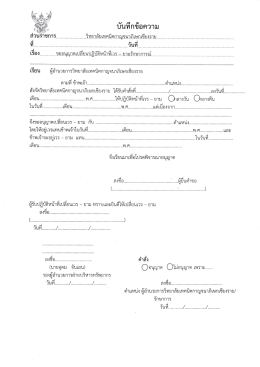 บันทึกข้อความ
ส่วนราชการ วิทยาลัยเทคนิคกาญจนาภิเษกเชียงราย
ที่ วันที่
เรื่อง ขออนุญาตเปลี่ยนปฏิบัติหน้าที่เวร – ยามรักษาการณ์
เรียน ผู้อำนวยการวิทยาลัยเทคนิคกาญจนาภิเษกเชียงราย
ตามที่ ข้าพเจ้า ตำแหน่ง
สังกัดวิทยาลัยเทคนิคกาญจนาภิเษกเชียงราย ได้รับคำสั่งที่ / ลงวันที่
เดือน พ.ศ. ให้ปฏิบัติหน้าที่เวร – ยาม กลางวัน กลางคืน
ในวันที่ เดือน พ.ศ. แต่เนื่องจาก
จึงขออนุญาตเปลี่ยนเวร – ยาม กับ ตำแหน่ง
โดยให้อยู่เวรแทนข้าพเจ้าในวันที่ เดือน พ.ศ. และ
ข้าพเจ้าจะอยู่เวร – ยาม แทน ในวันที่
เดือน พ.ศ.
จึงเรียนมาเพื่อโปรดพิจารณาอนุญาต
ลงชื่อ ผู้ยื่นคำขอ
( )
ผู้รับปฏิบัติหน้าที่เปลี่ยนเวร – ยาม ทราบและยินดีให้เปลี่ยนเวร – ยาม
ลงชื่อ
( )
วันที่ / /
ลงชื่อ คำสั่ง
อนุญาต ไม่อนุญาต เพราะ
รองผู้อำนวยการฝ่ายบริหารทรัพยากร
วันที่ / / ลงชื่อ
ตำแหน่ง ผู้อำนวยการวิทยาลัยเทคนิคกาญจนาภิเษกเชียงราย/
รักษาการ
วันที่ / /